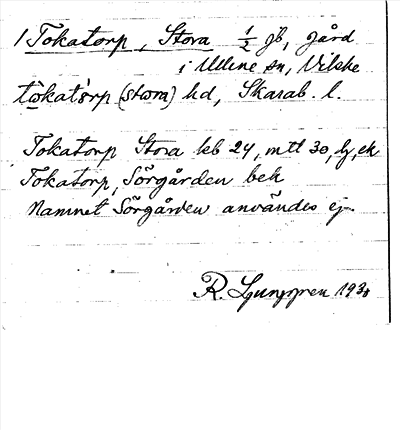 1 Tokatorp, Stora 1/2 jb, gård
i Ullene sn, Vilske
tòkatòrp (stora) hd, Skarab. l.
Tokatorp Stora kb 24, mtl 30, ly, ek
Tokatorp, Sörgården bek
Namnet Sörgården användes ej.
R. Ljunggren 1930